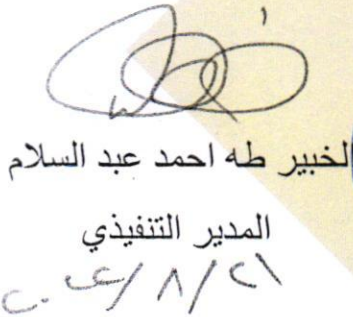 الخبير طه احمد عبد السلام
المدير التنفيذي
٢٠٢٤/٨/٢١